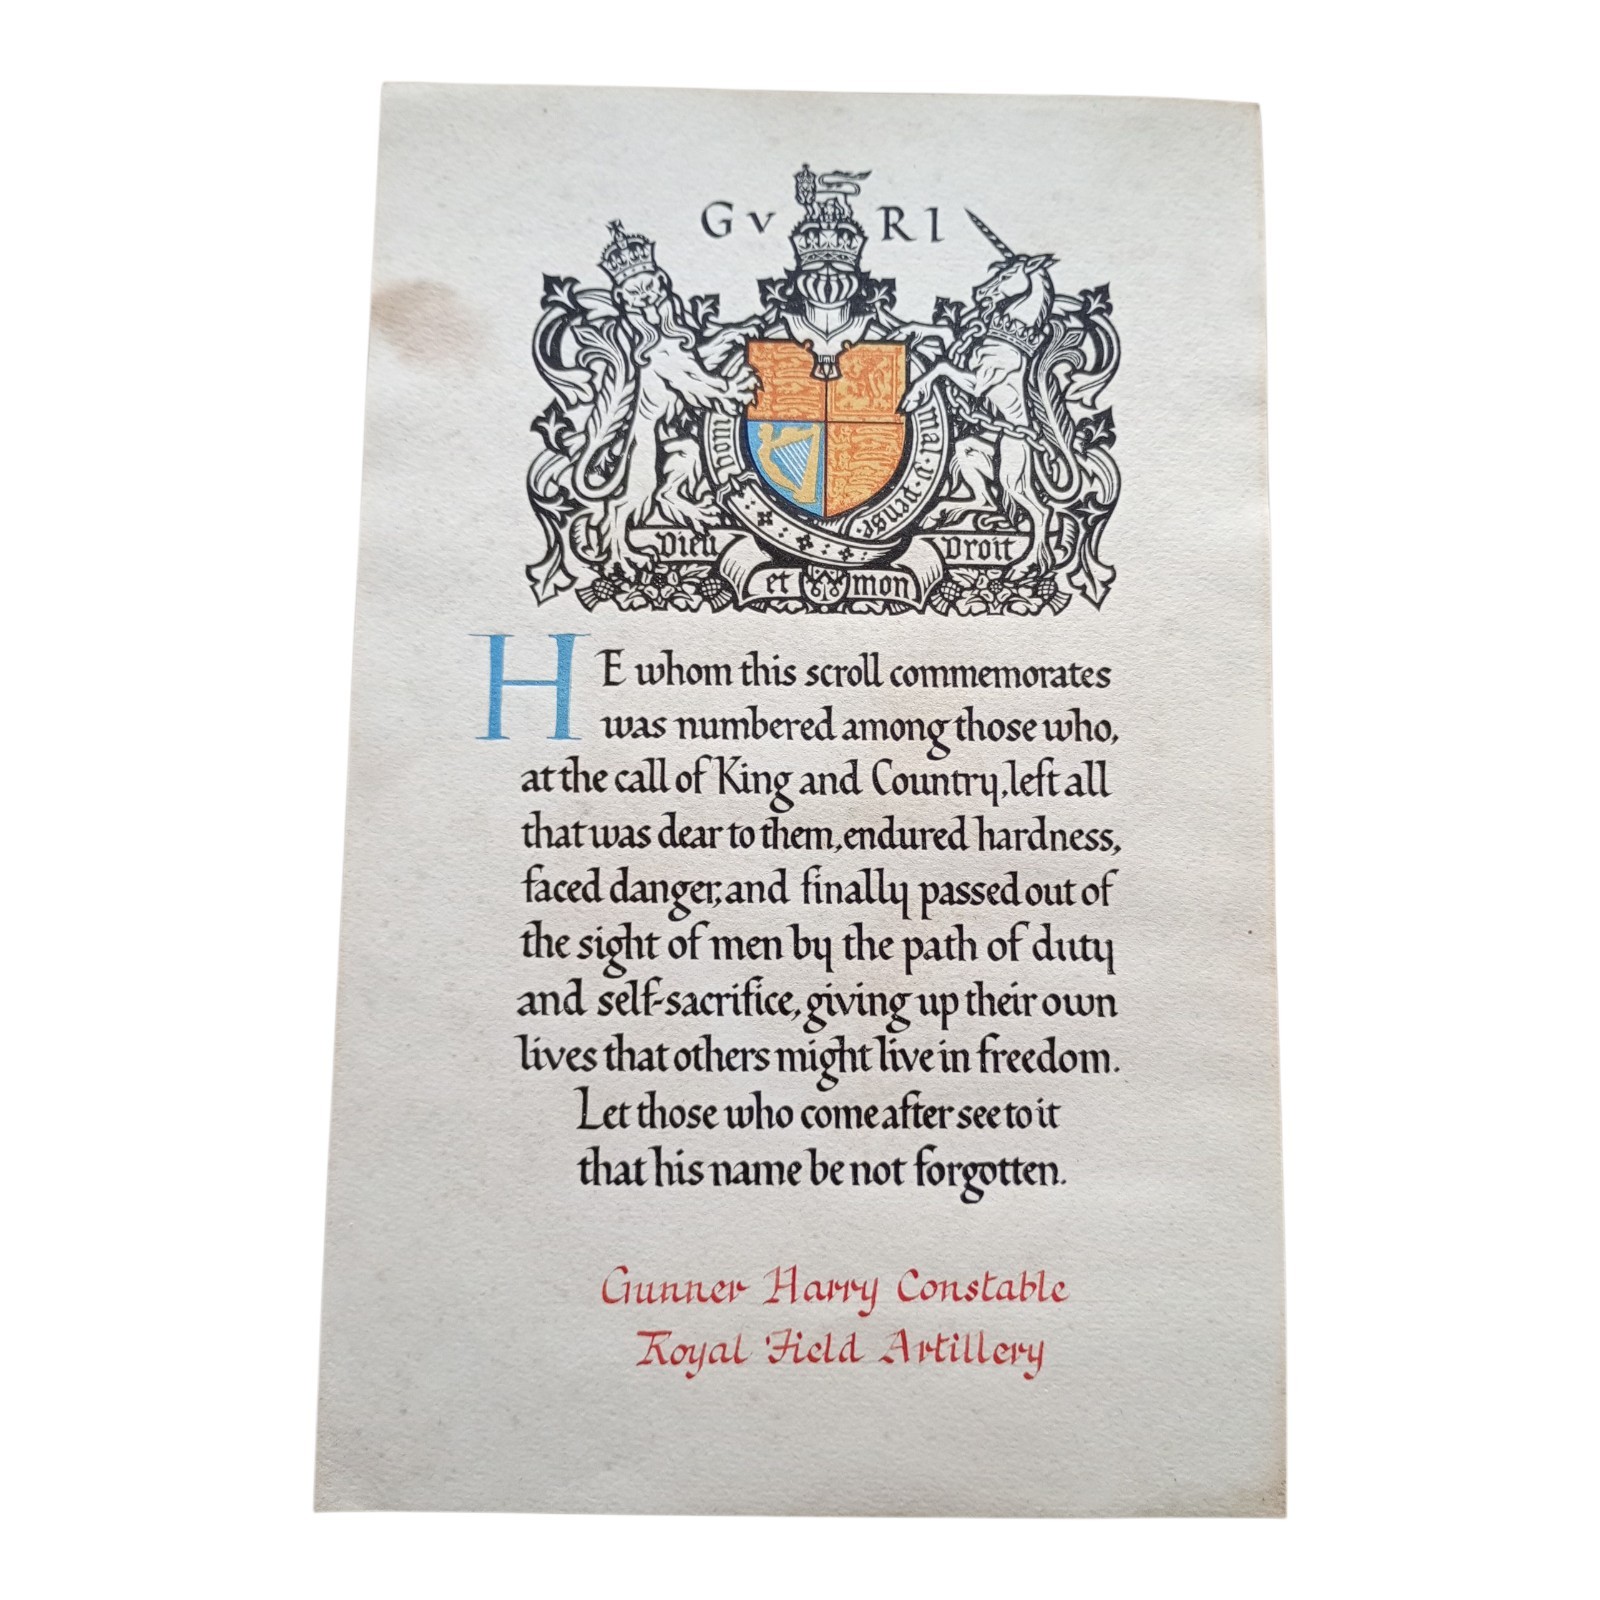 GV RI
hom
mal·y·pense
Dieu et mon Droit
HE whom this scroll commemorates
was numbered among those who,
at the call of King and Country, left all
that was dear to them, endured hardness,
faced danger, and finally passed out of
the sight of men by the path of duty
and self-sacrifice, giving up their own
lives that others might live in freedom.
Let those who come after see to it
that his name be not forgotten.
Gunner Harry Constable
Royal Field Artillery